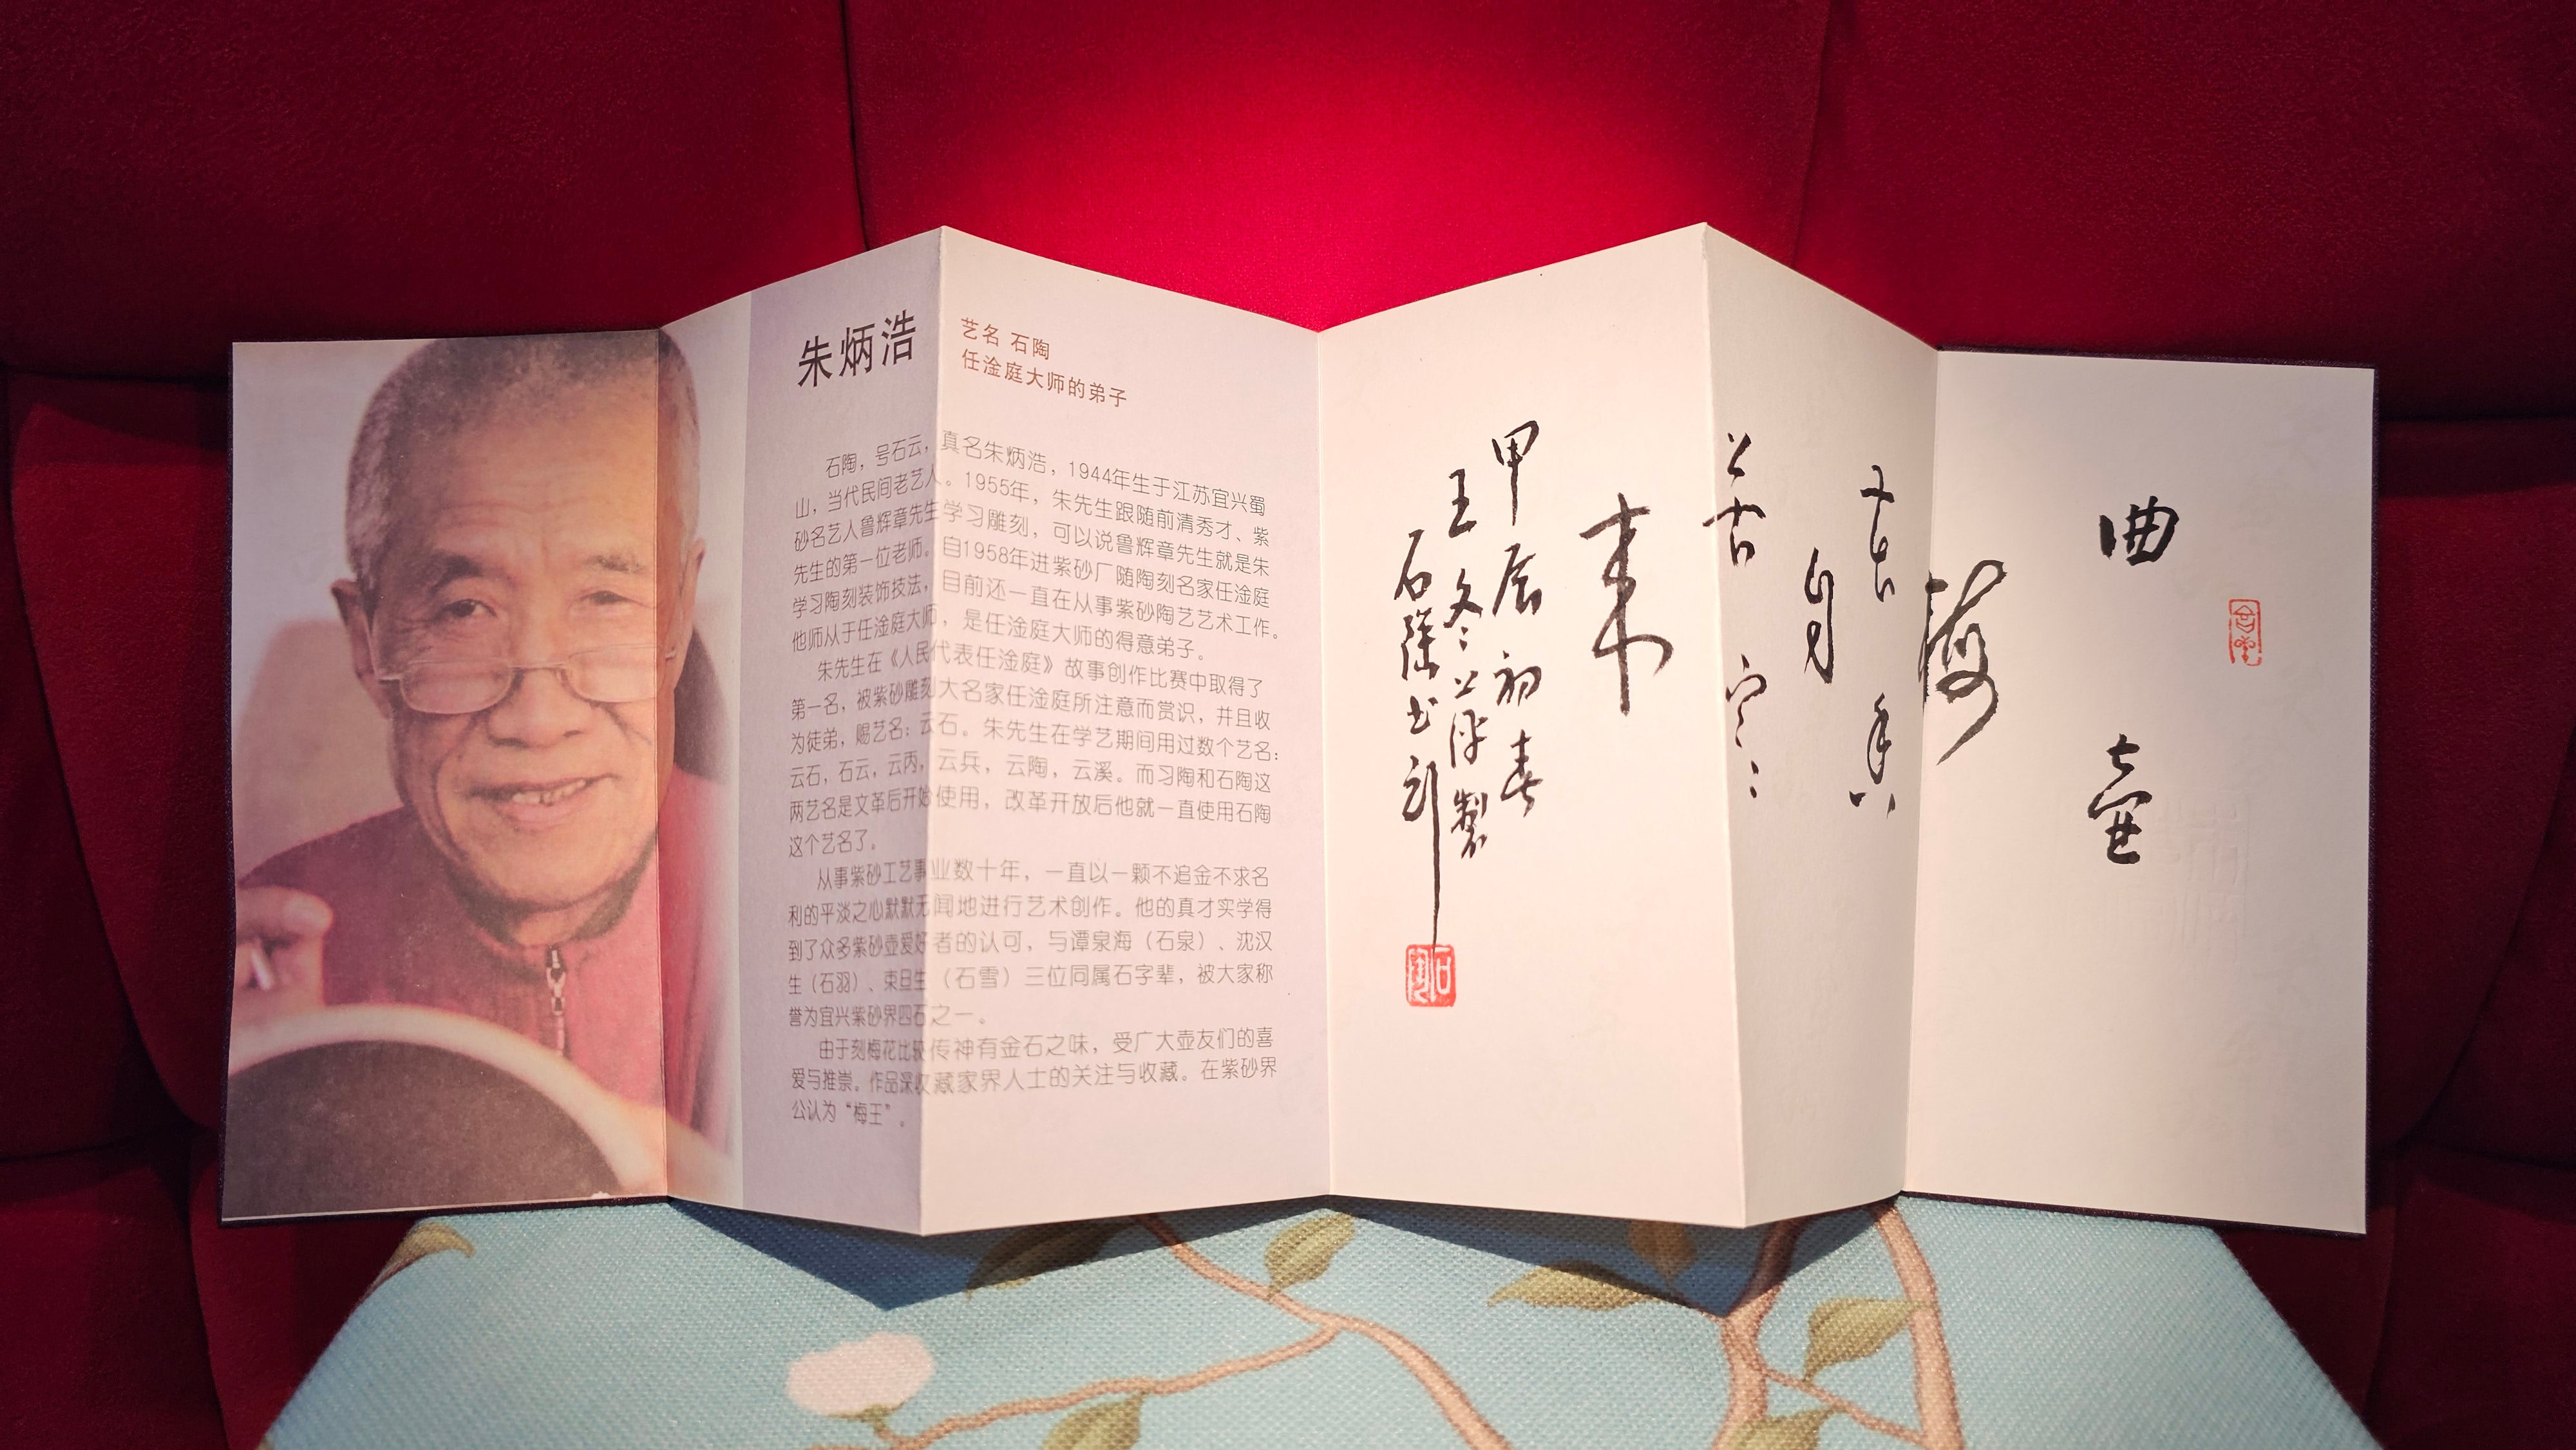 朱炳浩
艺名 石陶
任淦庭大师的弟子
石陶，号石云，真名朱炳浩，1944年生于江苏宜兴蜀
山，当代民间老艺人。1955年，朱先生跟随前清秀才、紫
砂名艺人鲁辉章先生学习雕刻，可以说鲁辉章先生就是朱
先生的第一位老师。自1958年进紫砂厂随陶刻名家任淦庭
学习陶刻装饰技法，目前还一直在从事紫砂陶艺艺术工作。
他师从于任淦庭大师，是任淦庭大师的得意弟子。
朱先生在《人民代表任淦庭》故事创作比赛中取得了
第一名，被紫砂雕刻大名家任淦庭所注意而赏识，并且收
为徒弟，赐艺名：云石。朱先生在学艺期间用过数个艺名：
云石，石云，云丙，云兵，云陶，云溪。而习陶和石陶这
两艺名是文革后开始使用，改革开放后他就一直使用石陶
这个艺名了。
从事紫砂工艺事业数十年，一直以一颗不追金不求名
利的平淡之心默默无闻地进行艺术创作。他的真才实学得
到了众多紫砂壶爱好者的认可，与谭泉海（石泉）、沈汉
生（石羽）、束旦生（石雪）三位同属石字辈，被大家称
誉为宜兴紫砂界四石之一。
由于刻梅花比较传神有金石之味，受广大壶友们的喜
爱与推崇。作品深收藏家界人士的关注与收藏。在紫砂界
公认为“梅王”。
曲壶
梅
花香
自
苦寒
来
甲辰初春
王 萍製
石陶书刻
石陶